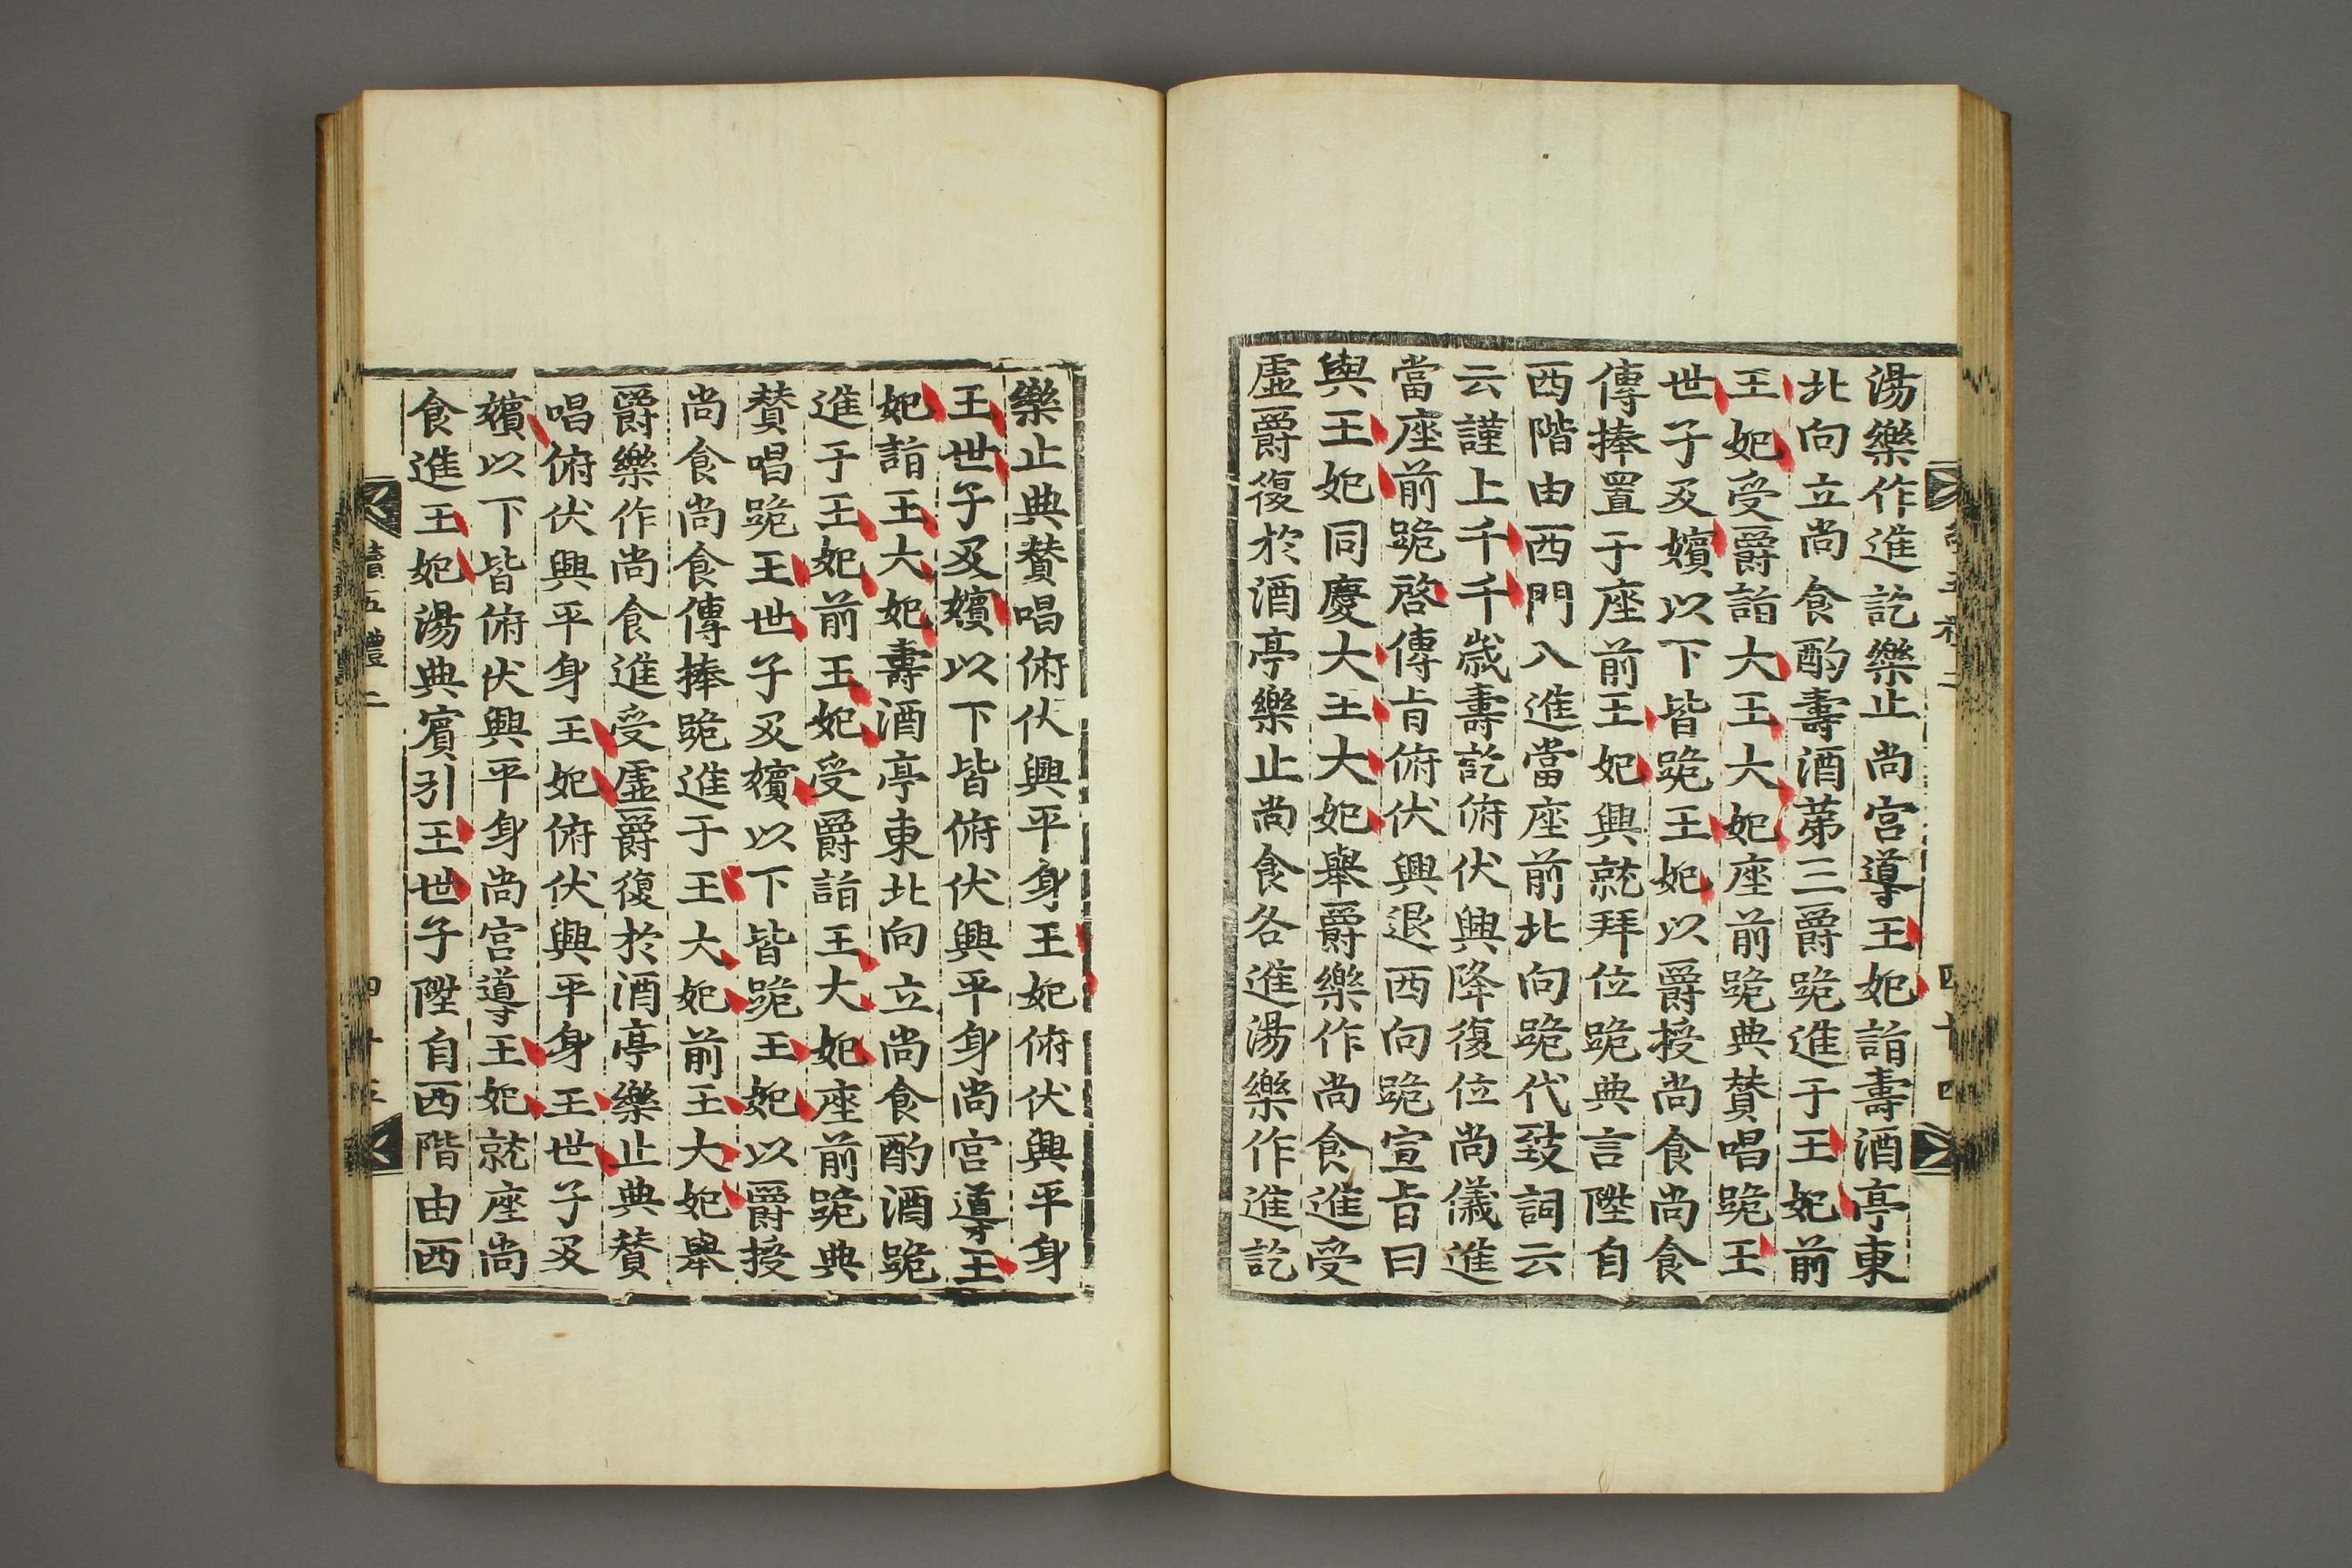 湯樂作進訖樂止尚宮導王妃詣壽酒亭東
北向立尚食酌壽酒苐三爵跪進于王妃前
王妃受爵詣大王大妃座前跪典賛唱跪王
世子及嬪以下皆跪王妃以爵授尚食尚食
傳捧置于座前王妃興就拜位跪典言陞自
西階由西門入進當座前北向跪代致詞云
云謹上千千歲壽訖俯伏興降復位尚儀進
當座前跪啓傳㫖俯伏興退西向跪宣㫖曰
與王妃同慶大王大妃舉爵樂作尚食進受
虛爵復於酒亭樂止尚食各進湯樂作進訖
四十四
樂止典賛唱俯伏興平身王妃俯伏興平身
王世子及嬪以下皆俯伏興平身尚宮導王
妃詣王大妃壽酒亭東北向立尚食酌酒跪
進于王妃前王妃受爵詣王大妃座前跪典
賛唱跪王世子及嬪以下皆跪王妃以爵授
尚食尚食傳捧跪進于王大妃前王大妃舉
爵樂作尚食進受虛爵復於酒亭樂止典賛
唱俯伏興平身王妃俯伏興平身王世子及
嬪以下皆俯伏興平身尚宮導王妃就座尚
食進王妃湯典賓引王世子陞自西階由西
續五禮二